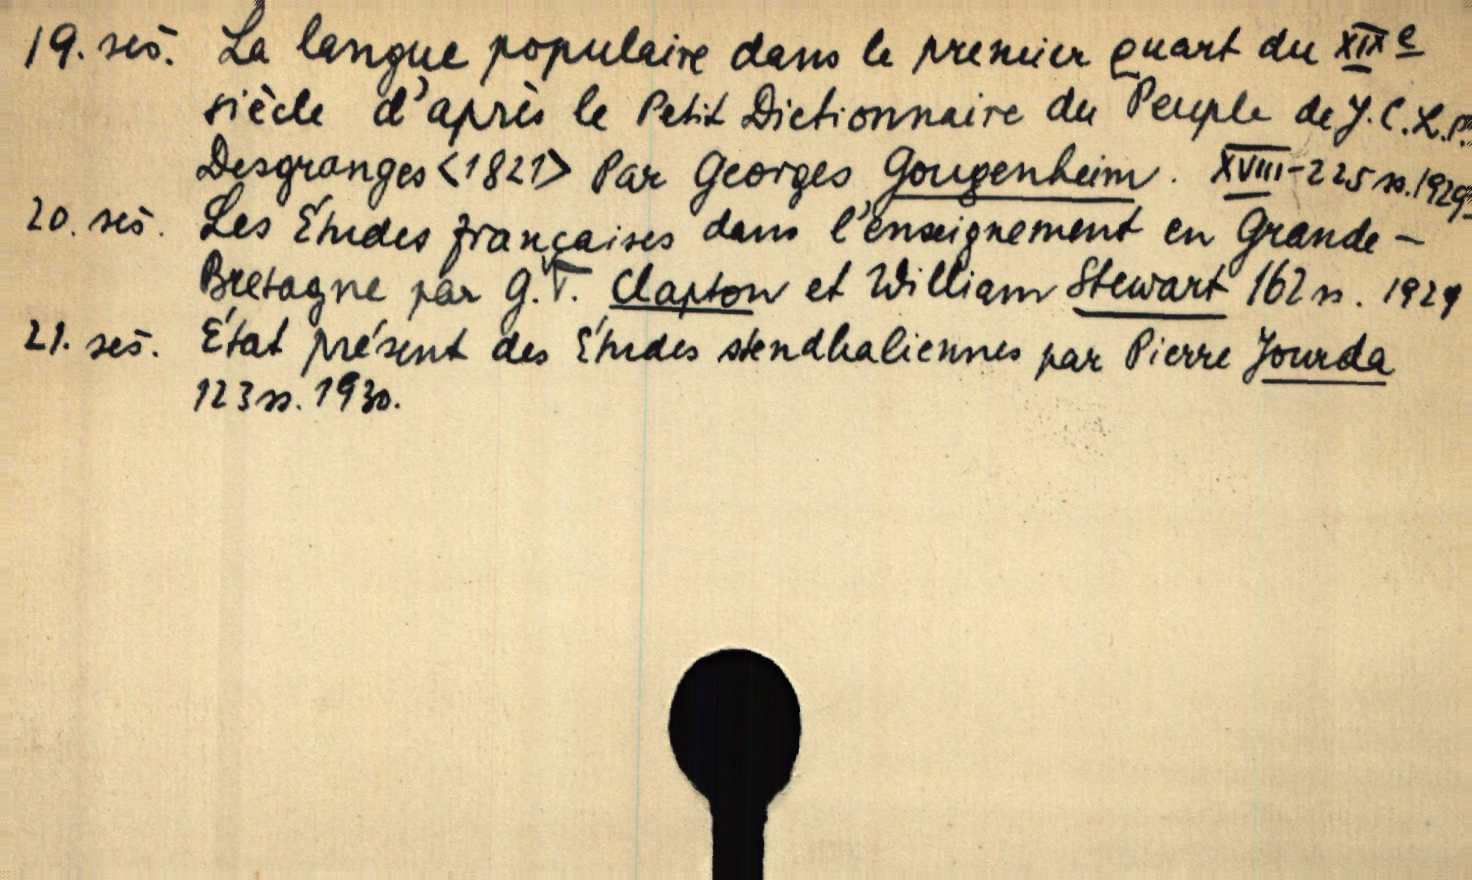 19. seš. La langue populaire dans le premier quart du XIXe
siècle d'après le Petit Dictionnaire du Peuple de J.C.L.P.
Desgranges <1821> Par Georges Gougenheim. XVIII-225 ss. 1929
20. seš. Les Études françaises dans l'enseignement en Grande-
Bretagne par G.T. Clapton et William Stewart 162 ss. 1929
21. seš. État présent des Études stendhaliennes par Pierre Jourda
123 ss. 1930.